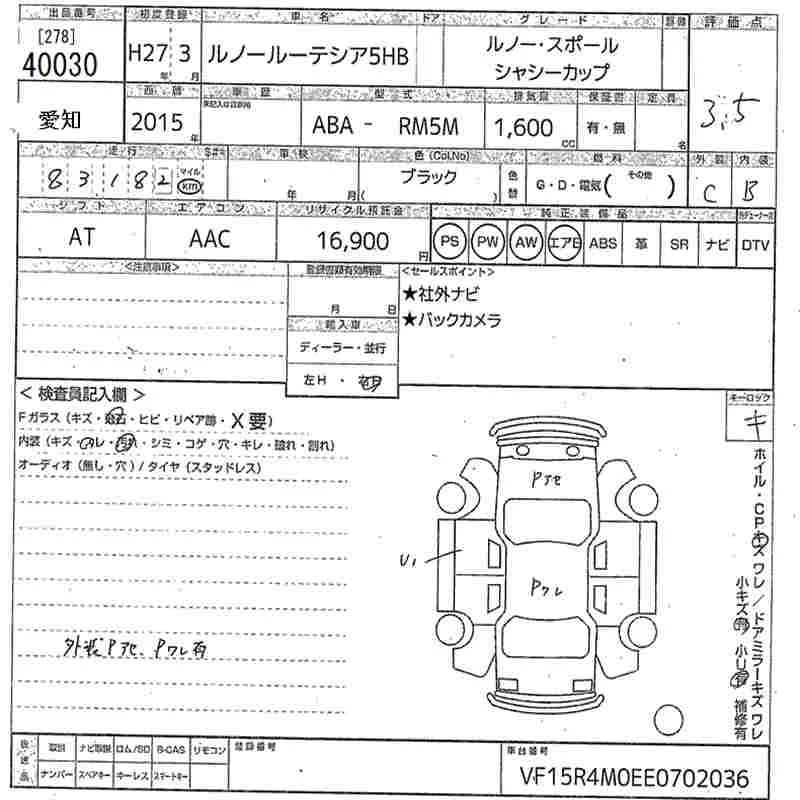 出品番号 初度登録 車名 ドア グレード 評価点
[278]
40030 H27年 3月 ルノールーテシア5HB ルノー・スポール シャシーカップ 3.5
愛知 西暦 車歴 型式 排気量 保証書 定員
2015年 ABA - RM5M 1,600cc 有・無 名
走行 車検 色(Col.No) 燃料 外装 内装
83182 マイル km 年 月 ブラック ( ) 色替 G・D・電気( その他 ) C B
シフト エアコン リサイクル預託金 純正装備品
AT AAC 16,900円 PS PW AW エアB ABS 革 SR ナビ DTV
<注意事項> 登録書類有効期限 <セールスポイント>
月 日 ★社外ナビ
輸入車 ★バックカメラ
ディーラー・並行
左H・右H
<検査員記入欄> キーロック
Fガラス(キズ・飛石・ヒビ・リペア跡・X要) キ
内装(キズ・スレ・汚れ・シミ・コゲ・穴・キレ・破れ・割れ)
オーディオ(無し・穴)/タイヤ(スタッドレス)
Pアセ
U1
Pワレ
外装Pアセ、Pワレ有
ホイル・CPキズ ワレ/ドアミラーキズ ワレ
小キズ有 小U有 補修有
後送品 取説 ナビ取説 ロム/SD B-CAS リモコン 登録番号 車台番号
ナンバー スペアキー キーレス スマートキー VF15R4M0EE0702036